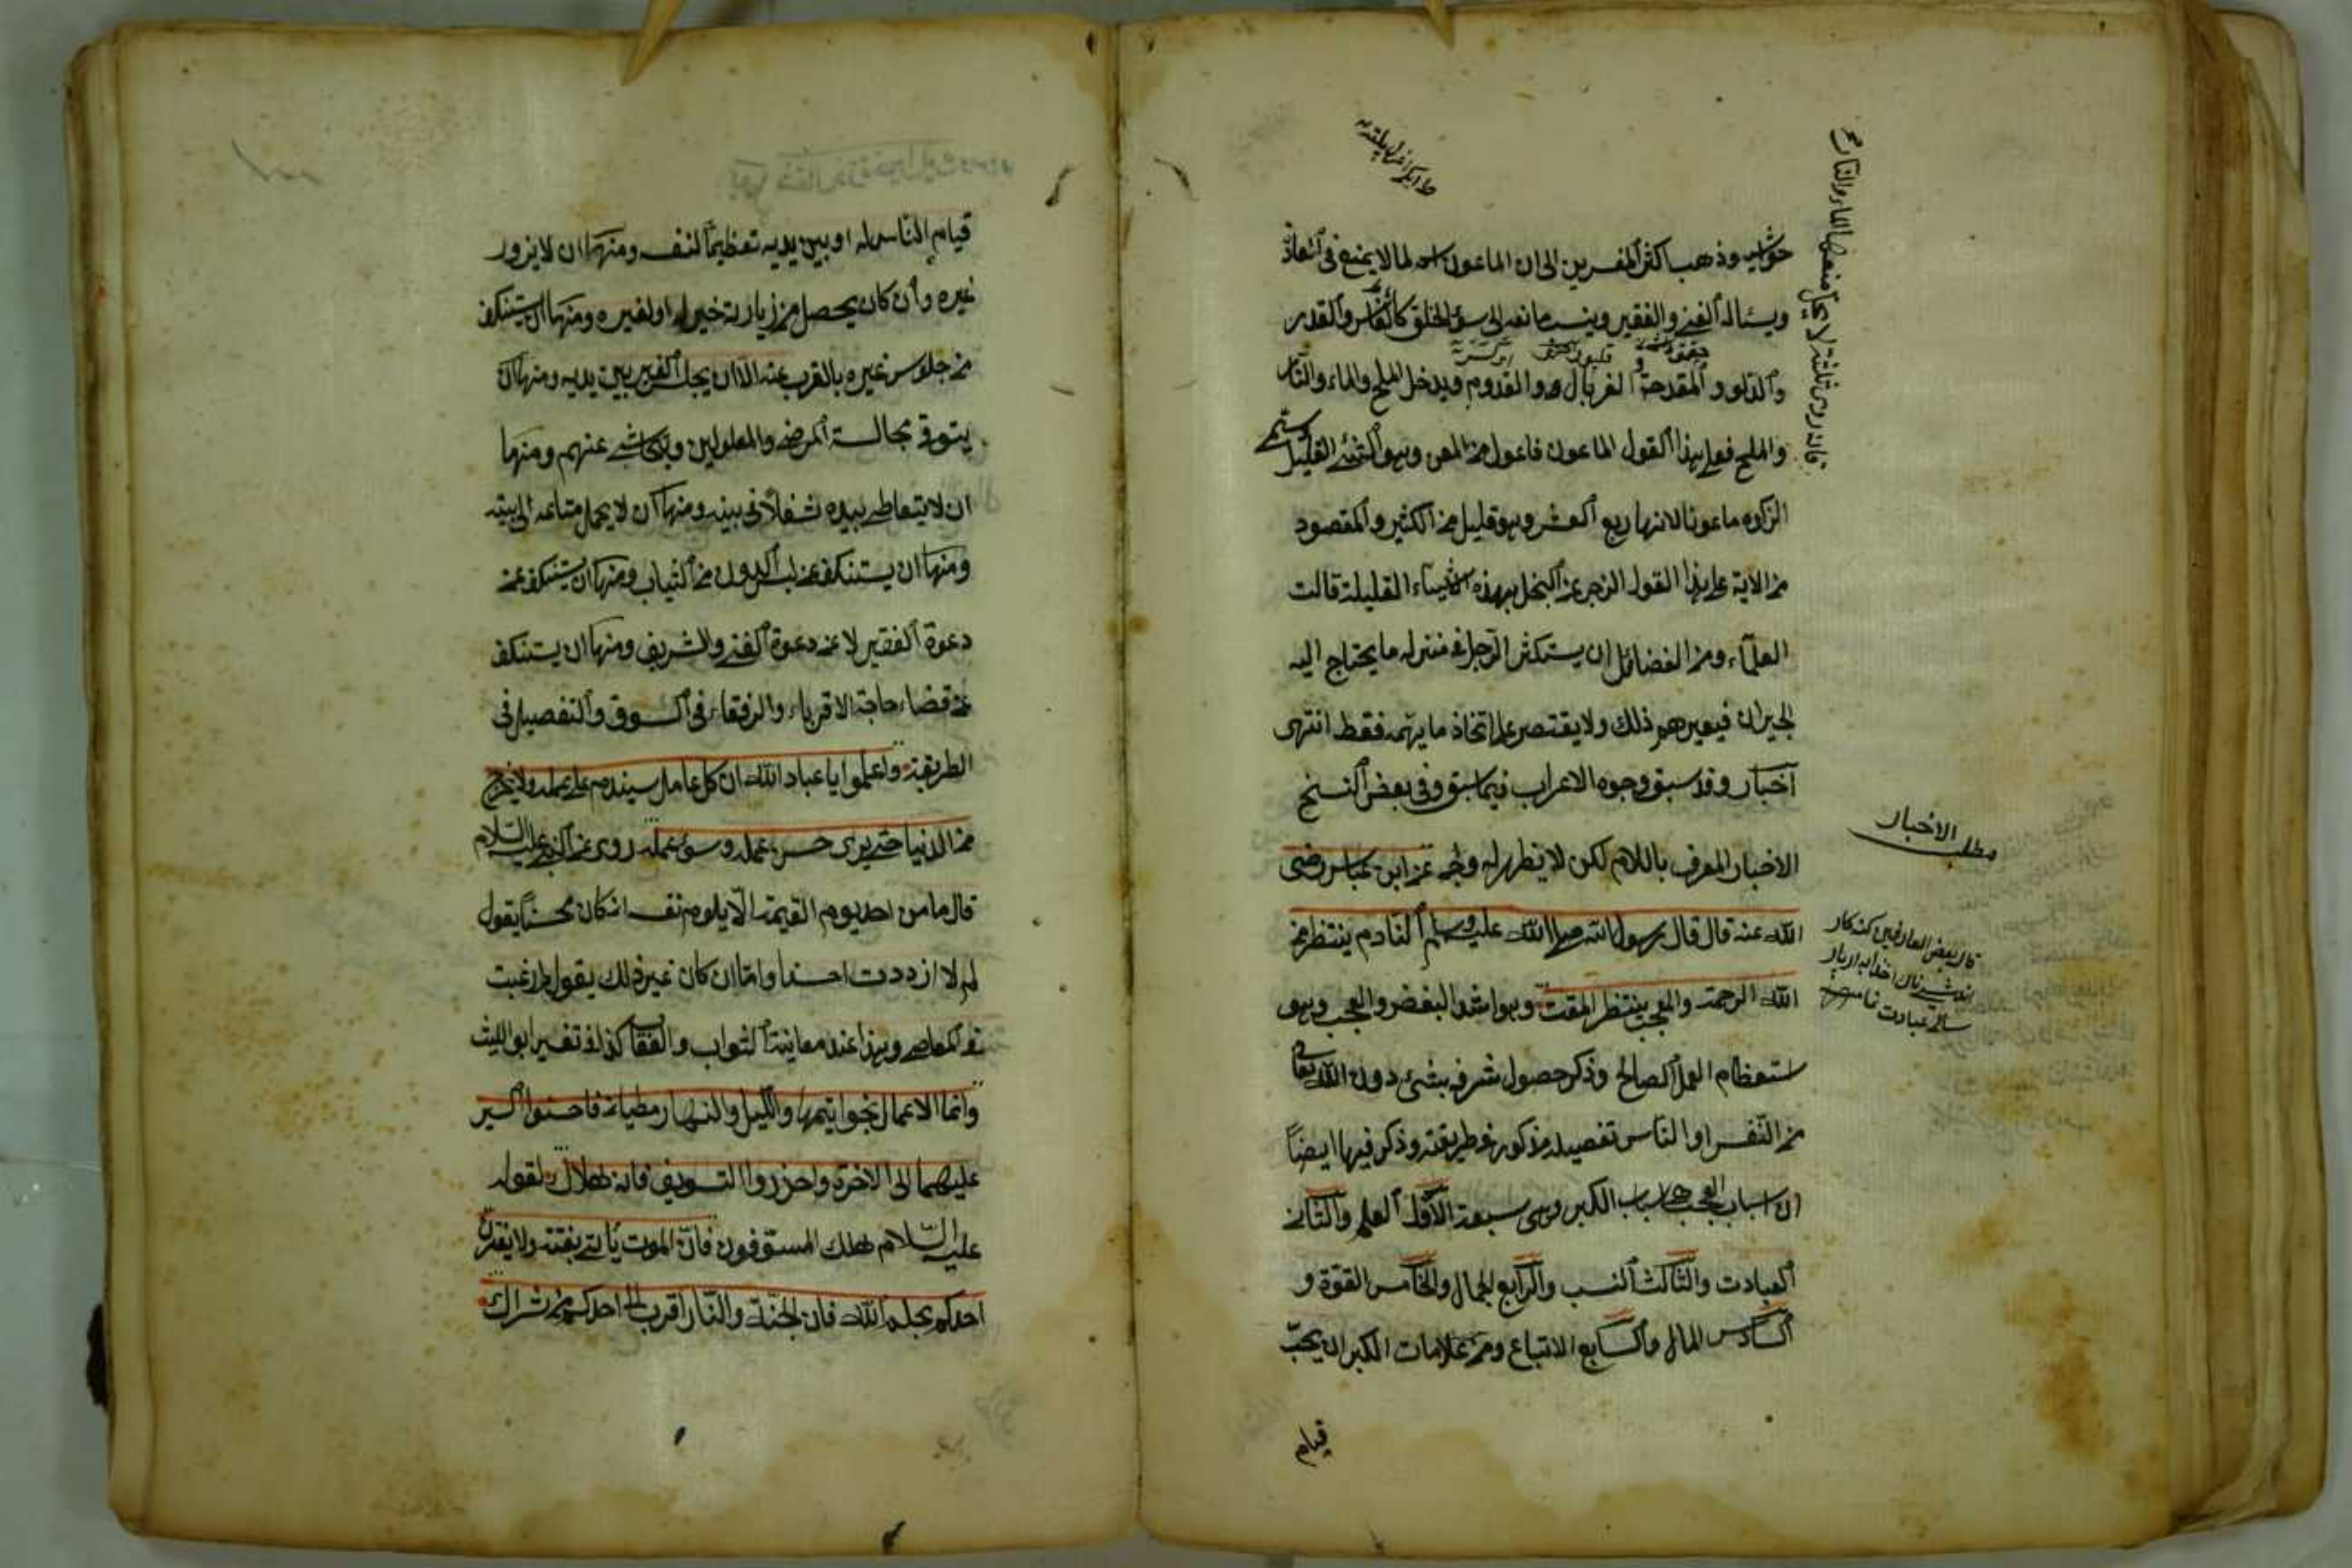 حواشيه وذهب اكثر المفسرين الى ان الماعون اسم لما لا يمنع في العادة
ويسئاله الغنى والفقير وينسب مانعه الى سوء الخلق كالفأس والقدر
والدلو والمقدحة و الغربال والقدوم ويدخل الملح والماء والنار
والملح فعلى هذا القول الماعون فاعول من المعن وهو الشئ القليل وسمى
الزكوة ماعونا لانها ربع العشر وهو قليل من الكثير والمقصود
من الاية على هذا القول الزجر عن البخل بهذه الاشياء القليلة قالت
العلماء ومن الفضائل ان يستكثر الرجل في منزله ما يحتاج اليه
الجيران فيعيرهم ذلك ولا يقتصر على اتخاذ ما يهمه فقط انتهى
اخبار وقد سبق وجوه الاعراب فيما سبق وفى بعض النسخ
الاخبار المعرف باللام لكن لا يظهر له وجه عن ابن عباس رضى
الله عنه قال قال رسول الله صلى الله عليه وسلم النادم ينتظر من
الله الرحمة والمعجب ينتظر المقت وهو اشد البغض والعجب وهو
استعظام العمل الصالح وذكر حصول شرفه بشئ دون الله تعالى
من النفس او الناس تفصيله مذكور في طريقته وذكر فيها ايضاً
ان اسباب العجب هي اسباب الكبر وهى سبعة الاول العلم والثانى
العبادت والثالث النسب والرابع الجمال والخامس القوة و
السادس المال والسابع الاتباع ومن علامات الكبر ان يحب
قيام
فانه روى ثلثة لا يحل منعها الماء والنار والملح
مطلب الاخبار
قال بعض العارفين
قيام الناس له او بين يديه تعظيماً لنفسه ومنها ان لا يزور
غيره وان كان يحصل من زيارته خير له او لغيره ومنها ان يستنكف
من جلوس غيره بالقرب عنه الا ان يجلس الغير بين يديه ومنها ان
يتوقى مجالسة المرضى والمعلولين ويتحاشى عنهم ومنها
ان لا يتعاطى بيده شغلاً فى بيته ومنها ان لا يحمل متاعه الى بيته
ومنها ان يستنكف عن لبس الدون من الثياب ومنها ان يستنكف عن
دعوة الفقير لا عن دعوة الغنى والشريف ومنها ان يستنكف
عن قضاء حاجة الاقرباء والرفقاء فى السوق والتفصيل فى
الطريقة واعلموا يا عباد الله ان كل عامل سيندم على عمله ولا يخرج
من الدنيا حتى يرى حسن عمله وسوء عمله روى عن النبى عليه السلام
قال ما من احد يوم القيمة الا يلوم نفسه ان كان محسناً يقول
لم لا ازددت احسانا واما ان كان غير ذلك يقول لم رغبت
فى المعاصى وهذا عند معاينة الثواب والعقاب كذا فى تفسير ابو الليث
وانما الاعمال بخواتيمها والليل والنهار مطيتان فاحسنوا السير
عليهما الى الاخرة واحذروا التسويف فانه هلاك لقوله
عليه السلام هلك المسوفون فان الموت يأتى بغتة ولا يغترن
احدكم بحلم الله فان الجنة والنار اقرب الى احدكم من شراك